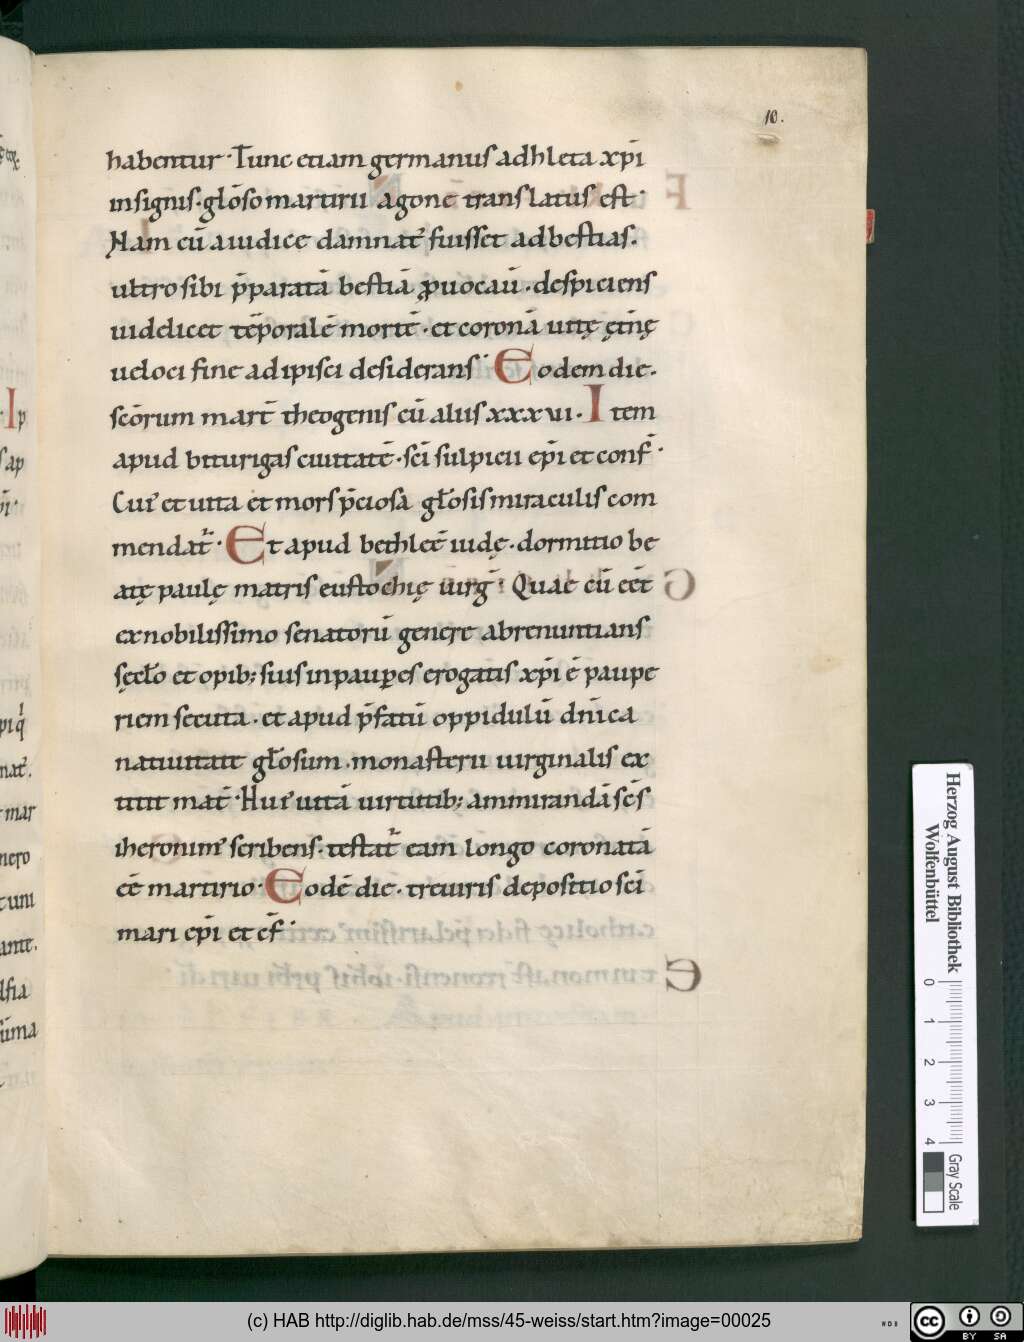 10.
habentur · Tunc etiam germanus adhleta xp̄i
insignis · gło̅so martirii agone translatus est ·
Nam cū a iudice damnat᷒ fuisset ad bestias.
ultro sibi p̄paratā bestiā ꝓuocauī · despiciens
uidelicet tēporalē mortē · et coronā uitę ętn̄ę
ueloci fine adipisci desiderans · Eodem die.
scōrum mart̄ theogenis cū aliis xxxvi · Item
apud biturigas ciuitatē · sc̄i sulpicii ep̄i et conf̄ ·
Cui᷒ et uita et mors p̄ciosa gło̅sis miraculis com
mendat᷑ · Et apud bethleē iudę · dormitio be
atę paulę matris eustochię uirḡ · Quae cū eēt
ex nobilissimo senatorū genere abrenuntians
sęcło et opib; suis in pauꝑes erogatis xp̄i ē paupe
riem secuta · et apud p̄fatū oppidulū dn̄ica
natiuitate gło̅sum · monasterii uirginalis ex
titit mat̄ · Hui᷒ uitā uirtutib; ammirandā sc̄s
iheronim᷒ scribens · testat᷑ eam longo coronatā
eē martirio · Eodē die · treuiris depositio sc̄i
mari ep̄i et cf̄ ·
Herzog August Bibliothek
Wolfenbüttel
0 1 2 3 4
Gray Scale
(c) HAB http://diglib.hab.de/mss/45-weiss/start.htm?image=00025
WDB
cc BY SA